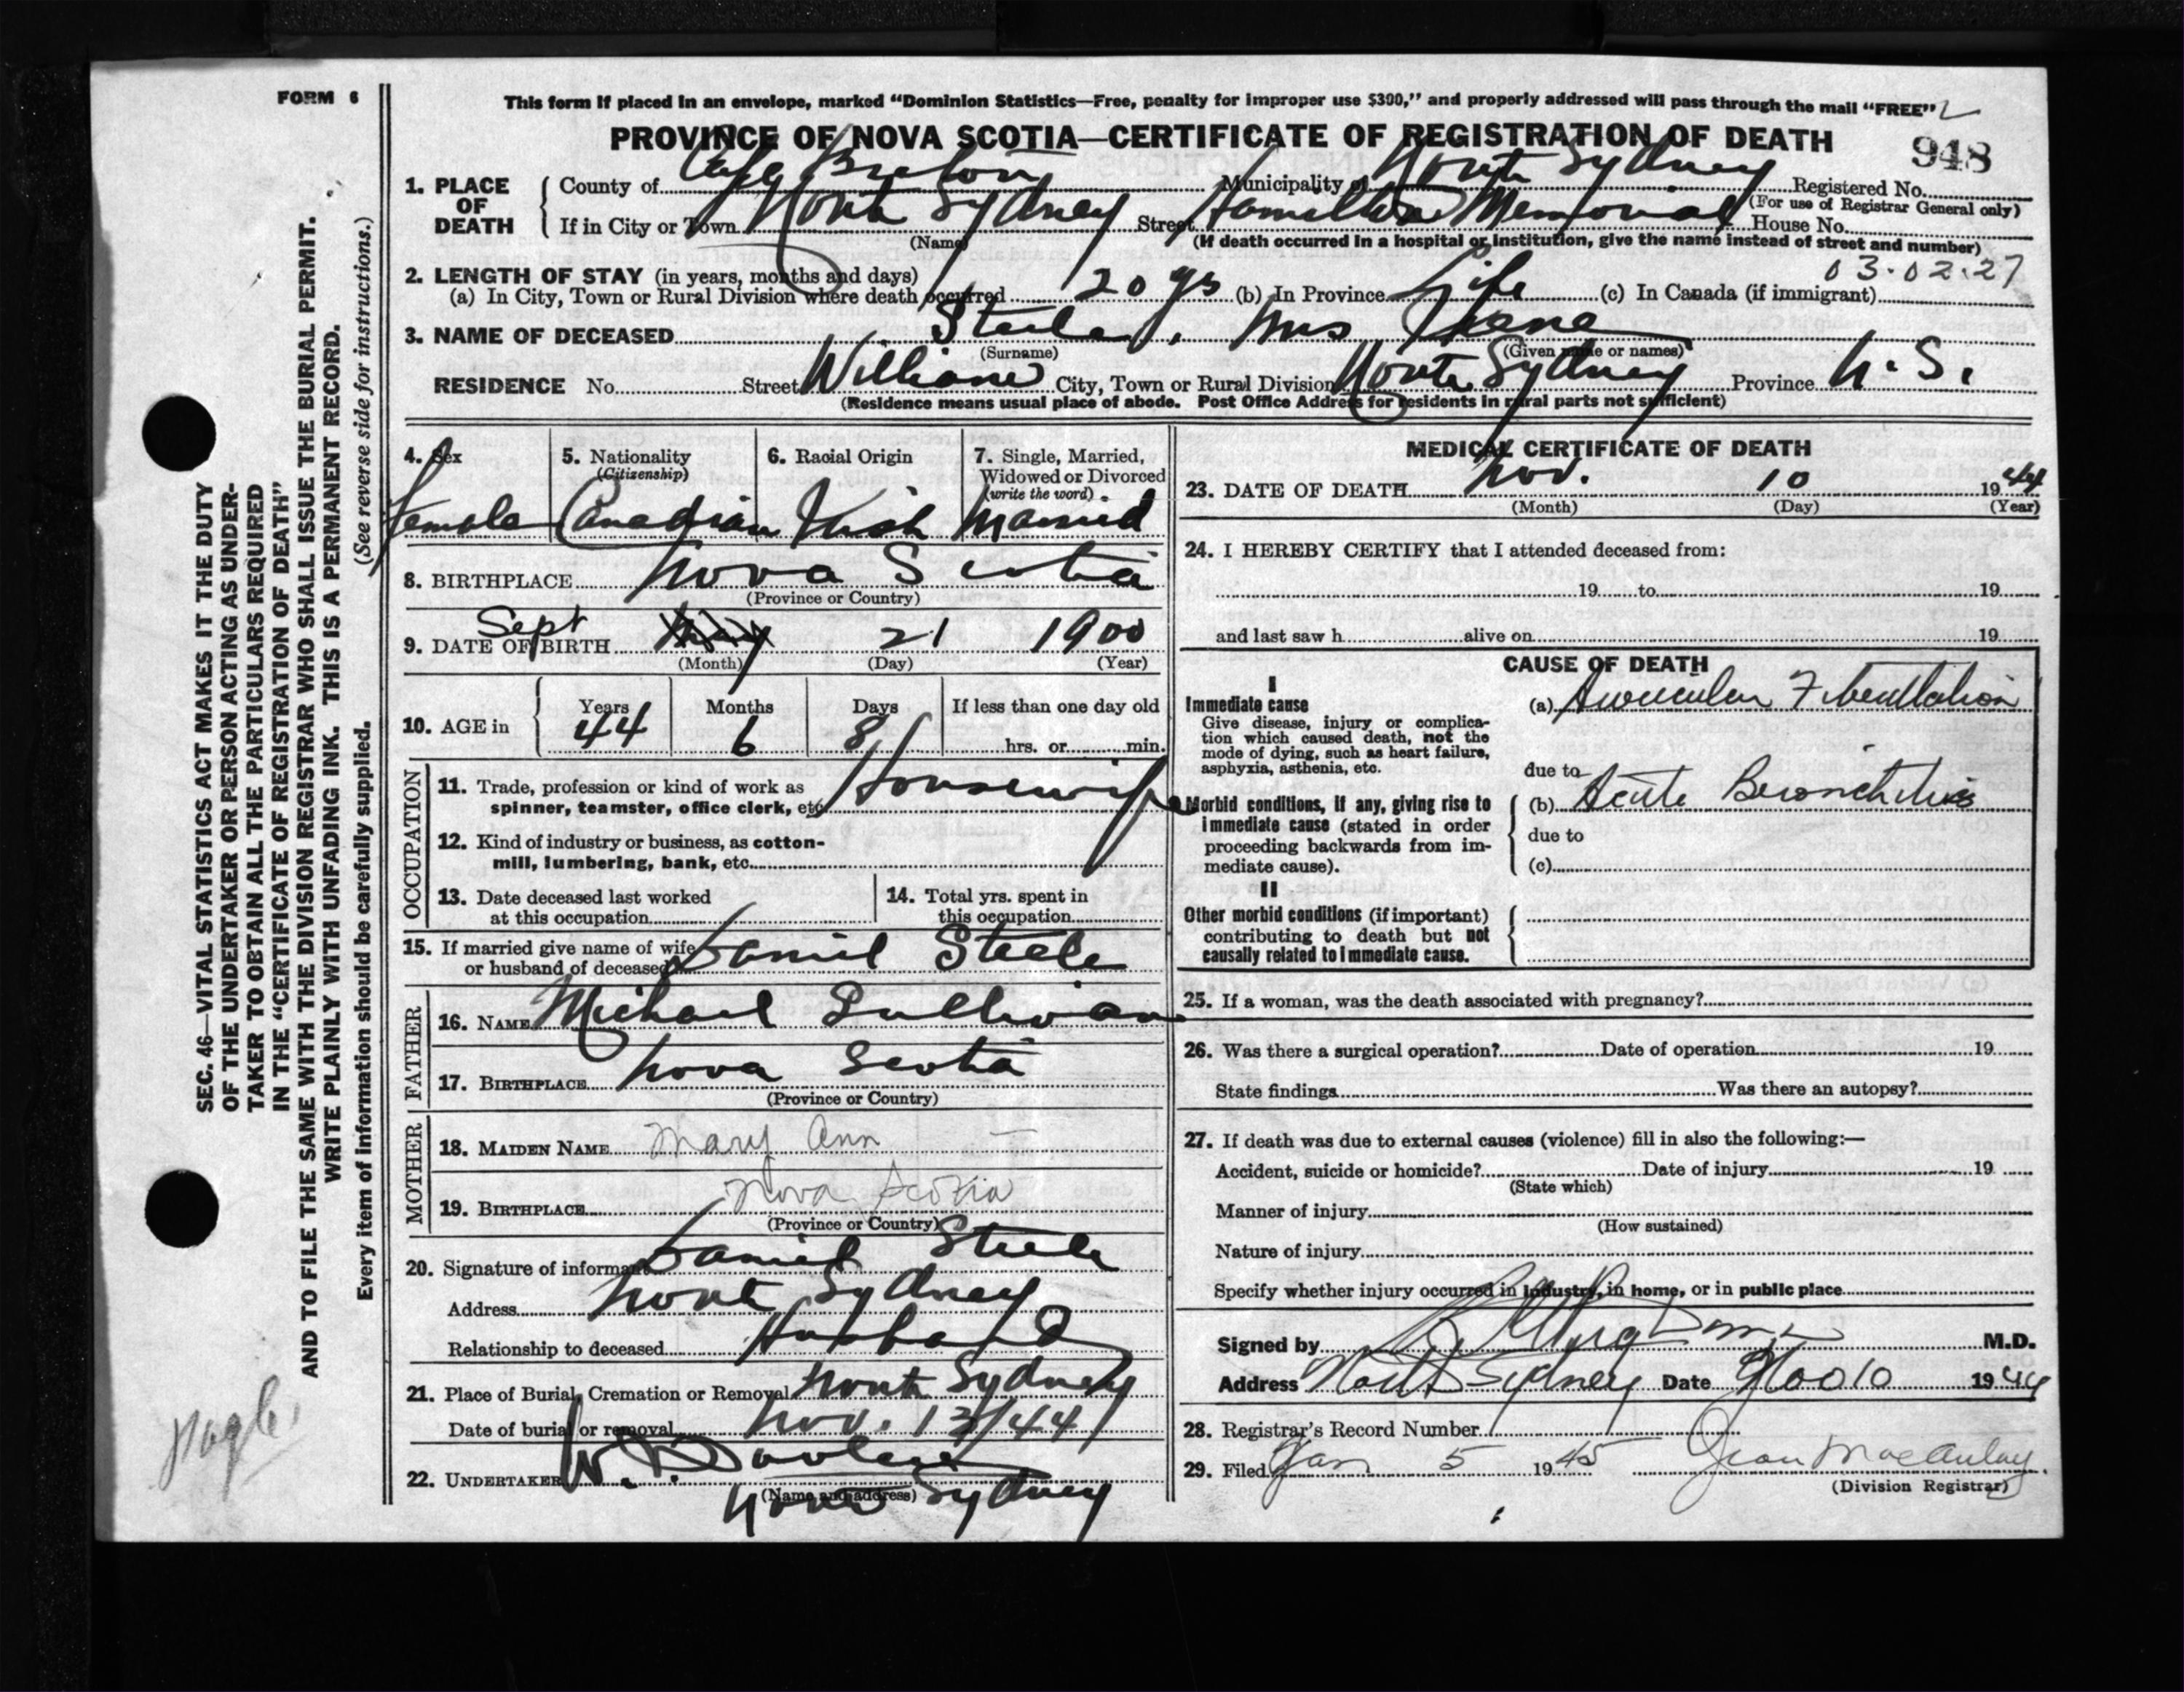 FORM 6
This form if placed in an envelope, marked “Dominion Statistics—Free, penalty for improper use $300,” and properly addressed will pass through the mail “FREE”
PROVINCE OF NOVA SCOTIA—CERTIFICATE OF REGISTRATION OF DEATH
948
1. PLACE OF DEATH
County of Cape Breton Municipality of North Sydney Registered No.
(For use of Registrar General only)
If in City or Town North Sydney Street Hamilton Memorial House No.
(Name) (If death occurred in a hospital or institution, give the name instead of street and number)
2. LENGTH OF STAY (in years, months and days) 03.02.27
(a) In City, Town or Rural Division where death occurred 20 yrs (b) In Province Life (c) In Canada (if immigrant)
3. NAME OF DECEASED Steele, Mrs
(Surname) (Given name or names)
RESIDENCE No. Street William City, Town or Rural Division North Sydney Province N.S.
(Residence means usual place of abode. Post Office Address for residents in rural parts not sufficient)
4. Sex
Female
5. Nationality
(Citizenship)
Canadian
6. Racial Origin
Irish
7. Single, Married,
Widowed or Divorced
(write the word)
Married
8. BIRTHPLACE Nova Scotia
(Province or Country)
9. DATE OF BIRTH Sept May 21 1900
(Month) (Day) (Year)
10. AGE in
Years Months Days If less than one day old
44 6 8 hrs. or min.
OCCUPATION
11. Trade, profession or kind of work as
spinner, teamster, office clerk, etc. Housewife
12. Kind of industry or business, as cotton-
mill, lumbering, bank, etc.
13. Date deceased last worked
at this occupation
14. Total yrs. spent in
this occupation
15. If married give name of wife
or husband of deceased Daniel Steele
FATHER
16. NAME Michael Sullivan
17. BIRTHPLACE Nova Scotia
(Province or Country)
MOTHER
18. MAIDEN NAME Mary Ann —
19. BIRTHPLACE Nova Scotia
(Province or Country)
20. Signature of informant Daniel Steele
Address North Sydney
Relationship to deceased Husband
21. Place of Burial, Cremation or Removal North Sydney
Date of burial or removal Nov. 13/44
22. UNDERTAKER
(Name and address)
North Sydney
MEDICAL CERTIFICATE OF DEATH
23. DATE OF DEATH Nov. 10 1944
(Month) (Day) (Year)
24. I HEREBY CERTIFY that I attended deceased from:
19 to 19
and last saw h alive on 19
CAUSE OF DEATH
I
Immediate cause
Give disease, injury or complica-
tion which caused death, not the
mode of dying, such as heart failure,
asphyxia, asthenia, etc.
(a) Auricular Fibrillation
due to
Morbid conditions, if any, giving rise to
immediate cause (stated in order
proceeding backwards from im-
mediate cause).
(b) Acute Bronchitis
due to
(c)
II
Other morbid conditions (if important)
contributing to death but not
causally related to immediate cause.
25. If a woman, was the death associated with pregnancy?
26. Was there a surgical operation? Date of operation 19
State findings Was there an autopsy?
27. If death was due to external causes (violence) fill in also the following:—
Accident, suicide or homicide? Date of injury 19
(State which)
Manner of injury
(How sustained)
Nature of injury
Specify whether injury occurred in industry, in home, or in public place
Signed by M.D.
Address North Sydney Date Nov 10 1944
28. Registrar's Record Number
29. Filed Jan 5 1945 Jean MacAulay
(Division Registrar)
SEC. 46—VITAL STATISTICS ACT MAKES IT THE DUTY
OF THE UNDERTAKER OR PERSON ACTING AS UNDER-
TAKER TO OBTAIN ALL THE PARTICULARS REQUIRED
IN THE “CERTIFICATE OF REGISTRATION OF DEATH”
AND TO FILE THE SAME WITH THE DIVISION REGISTRAR WHO SHALL ISSUE THE BURIAL PERMIT.
WRITE PLAINLY WITH UNFADING INK. THIS IS A PERMANENT RECORD.
Every item of information should be carefully supplied. (See reverse side for instructions.)